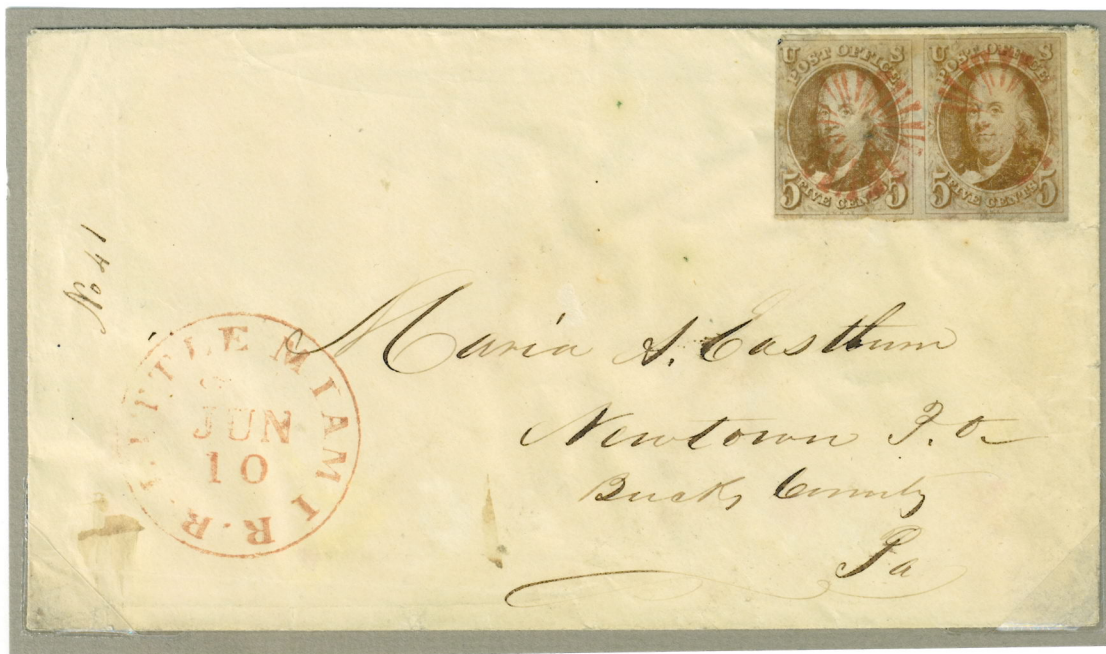 U S
POST OFFICE
5 FIVE CENTS 5
U S
POST OFFICE
5 FIVE CENTS 5
No 41
LITTLE MIAMI R.R.
JUN
10
Maria S. Eastburn
Newtown P.O.
Bucks County
Pa